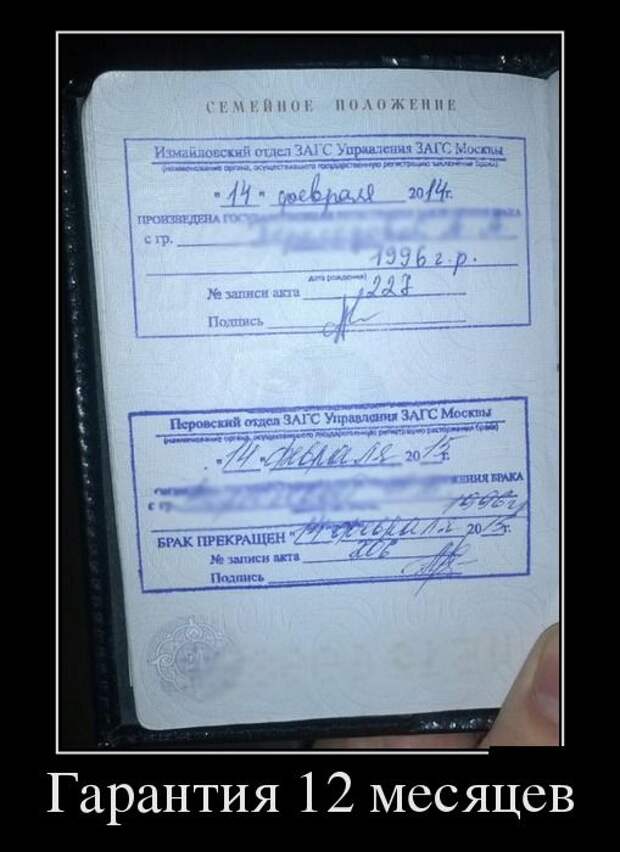 СЕМЕЙНОЕ ПОЛОЖЕНИЕ
Измайловский отдел ЗАГС Управления ЗАГС Москвы
(наименование органа, осуществившего государственную регистрацию заключения брака)
"14" февраля 2014г.
ПРОИЗВЕДЕНА БРАКА
с гр.
1996 г.р.
дата рождения)
№ записи акта 227
Подпись
Перовский отдел ЗАГС Управления ЗАГС Москвы
(наименование органа, осуществившего государственную регистрацию расторжения брака)
"14" февраля 2015г.
БРАКА
с гр. 1996г
БРАК ПРЕКРАЩЕН "14" февраля 2015г.
№ записи акта 206
Подпись
Гарантия 12 месяцев